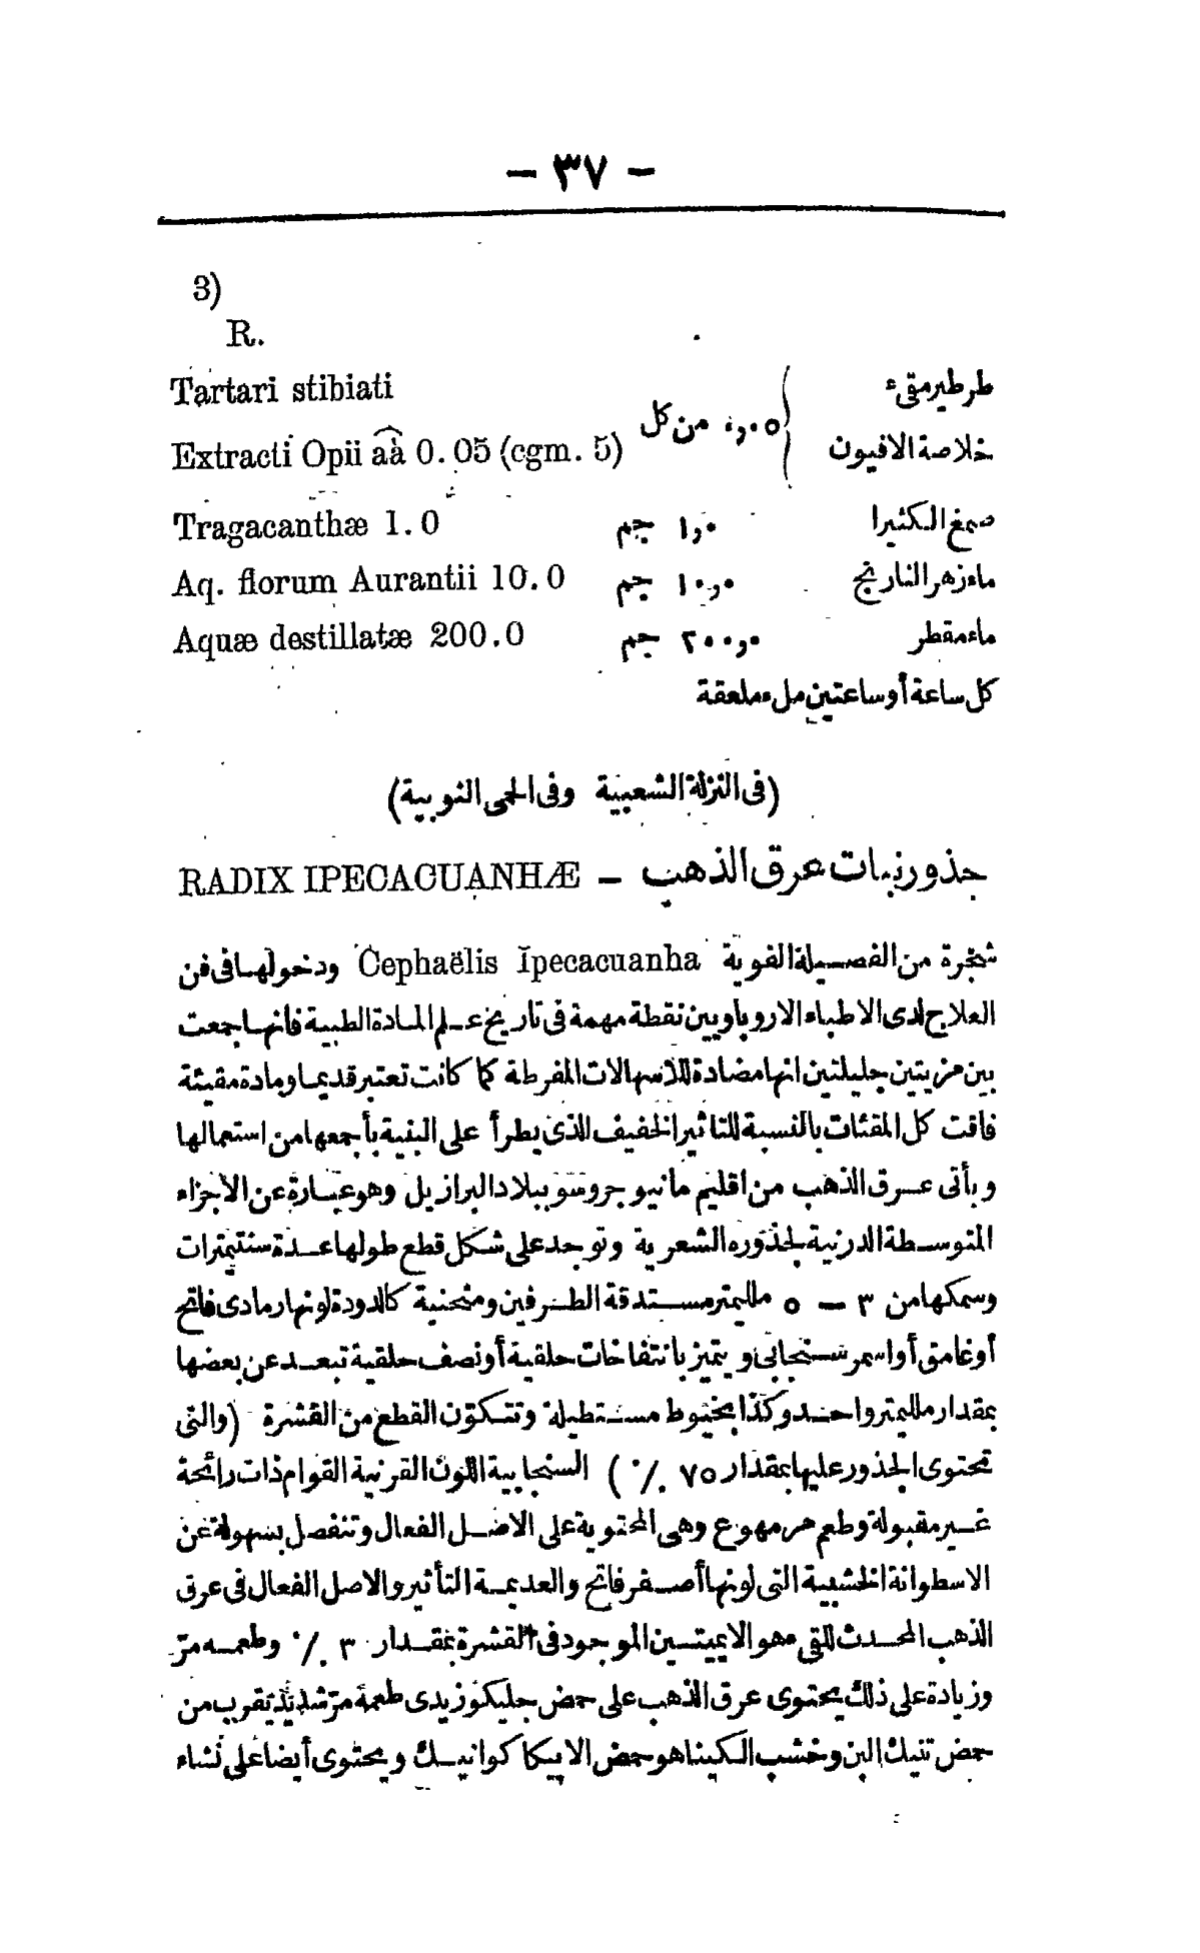 - ٣٧ -
3)
R.
Tartari stibiati طرطير مقىء
Extracti Opii āā 0.05 (cgm. 5) ٠,٠٥ من كل خلاصة الافيون
Tragacanthæ 1.0 ١,٠ جم صمغ الكثيرا
Aq. florum Aurantii 10.0 ١٠,٠ جم ماء زهر النارنج
Aquæ destillatæ 200.0 ٢٠٠,٠ جم ماء مقطر
كل ساعة أو ساعتين ملء ملعقة
(فى النزلة الشعبية وفى الحمى النوبية)
جذور نبات عرق الذهب - RADIX IPECACUANHÆ
شجرة من الفصيلة الفوية Cephaëlis Ipecacuanha ودخولها فى فن
العلاج لدى الاطباء الاروباويين نقطة مهمة فى تاريخ علم المادة الطبية فانها جمعت
بين مزيتين جليلتين انها مضادة للاسهالات المفرطة كما كانت تعتبر قديما ومادة مقيئة
فاقت كل المقئات بالنسبة للتاثير الخفيف الذى يطرأ على البنية بأجمعها من استعمالها
ويأتى عرق الذهب من اقليم مانيو جروسو ببلاد البرازيل وهو عبارة عن الاجزاء
المتوسطة الدرنية لجذوره الشعرية وتوجد على شكل قطع طولها عدة سنتيمترات
وسمكها من ٣ - ٥ ملليمتر مستدقة الطرفين ومنحنية كالدودة لونها رمادى فاتح
أو غامق أو اسمر سنجابى ويتميز بانتفاخات حلقية أو نصف حلقية تبعد عن بعضها
بمقدار ملليمتر واحد وكذا بخيوط مستطيلة وتتكوّن القطع من القشرة (والتى
تحتوى الجذور عليها بمقدار ٧٥ ٪) السنجابية اللون القرنية القوام ذات رائحة
غير مقبولة وطعم مر مهوع وهى المحتوية على الاصل الفعال وتنفصل بسهولة عن
الاسطوانة الخشبية التى لونها أصفر فاتح والعديمة التأثير والاصل الفعال فى عرق
الذهب المحدث للقى هو الايميتسين الموجود فى القشرة بمقدار ٣ ٪ وطعمه مرّ
وزيادة على ذلك يحتوى عرق الذهب على حمض جليكوزيدى طعمة مرّ شديد يقرب من
حمض تنيك البن وخشب الكينا هو حمض الايپكا كوانيك ويحتوى أيضا على نشاء